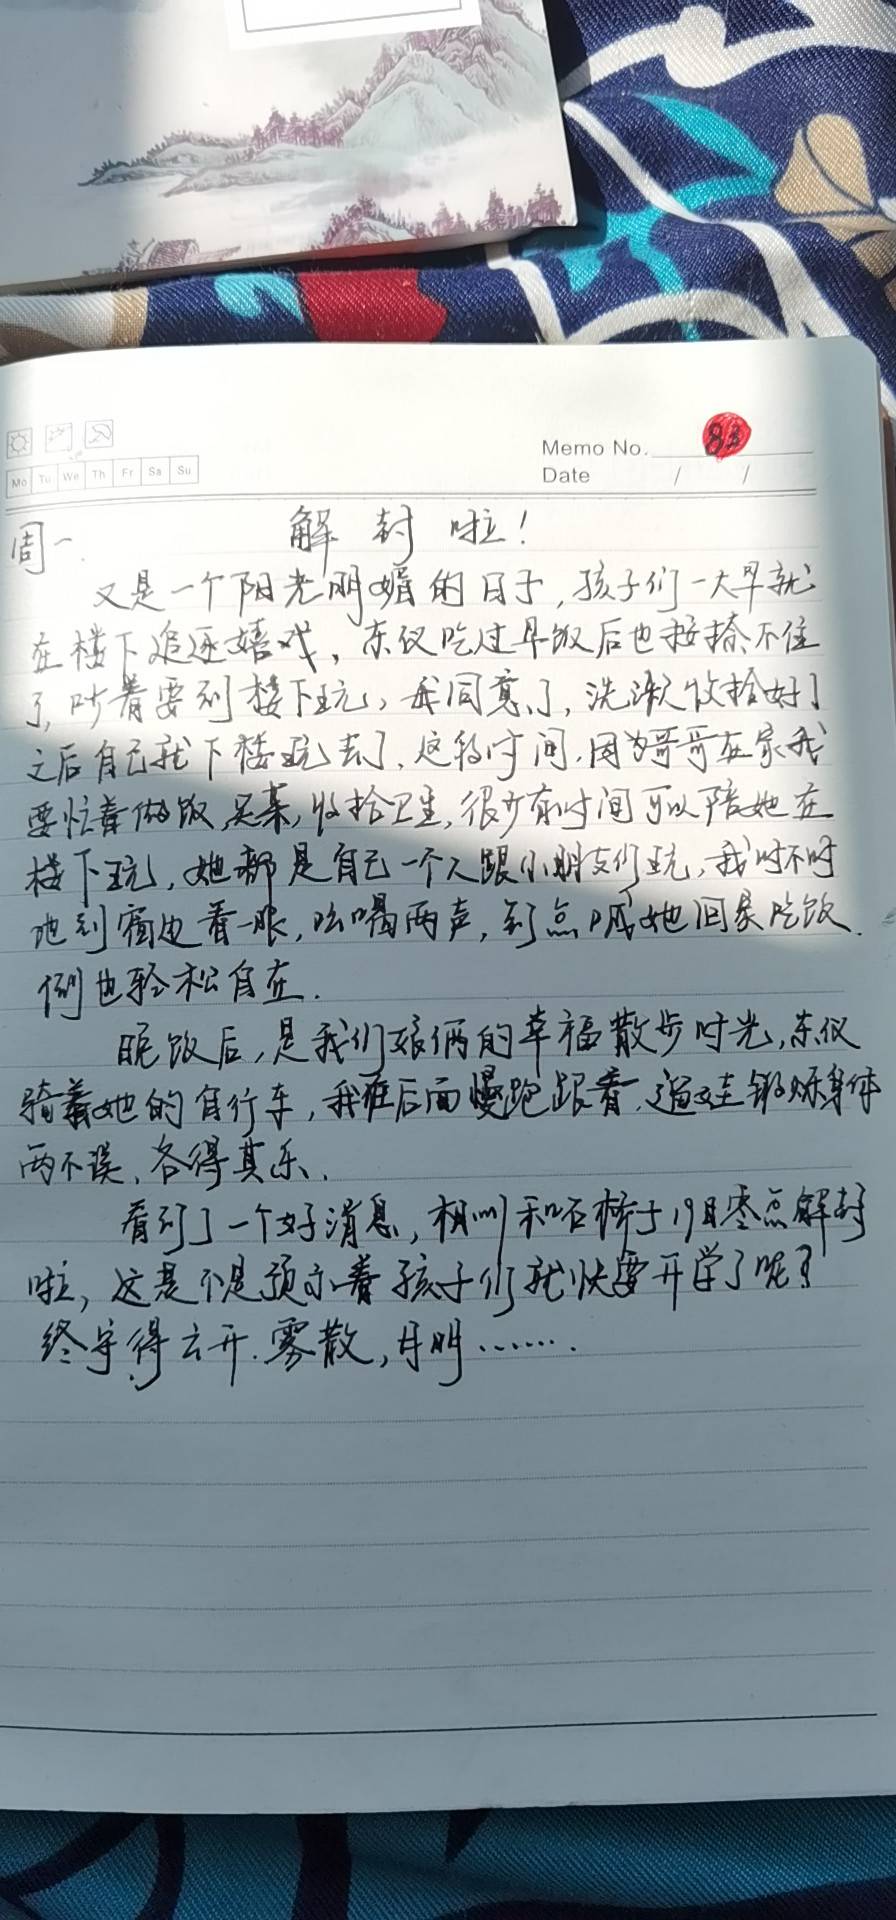 Memo No. 83
Mo Tu We Th Fr Sa Su
Date / /
周一. 解封啦！
又是一个阳光明媚的日子，孩子们一大早就
在楼下追逐嬉戏，东仪吃过早饭后也按捺不住
了，吵着要到楼下玩，我同意了，洗漱收拾好了
之后自己就下楼玩去了，这段时间，因为哥哥在家我
要忙着做饭，买菜，收拾卫生，很少有时间可以陪她在
楼下玩，她都是自己一个人跟小朋友们玩，我时不时
地到窗边看一眼，吆喝两声，到点喊她回家吃饭.
倒也轻松自在.
晚饭后，是我们娘俩的幸福散步时光，东仪
骑着她的自行车，我在后面慢跑跟着，遛娃锻炼身体
两不误，各得其乐.
看到了一个好消息，相州和石桥子19日零点解封
啦，这是不是预示着孩子们就快要开学了呢？
终守得云开.雾散，月明……